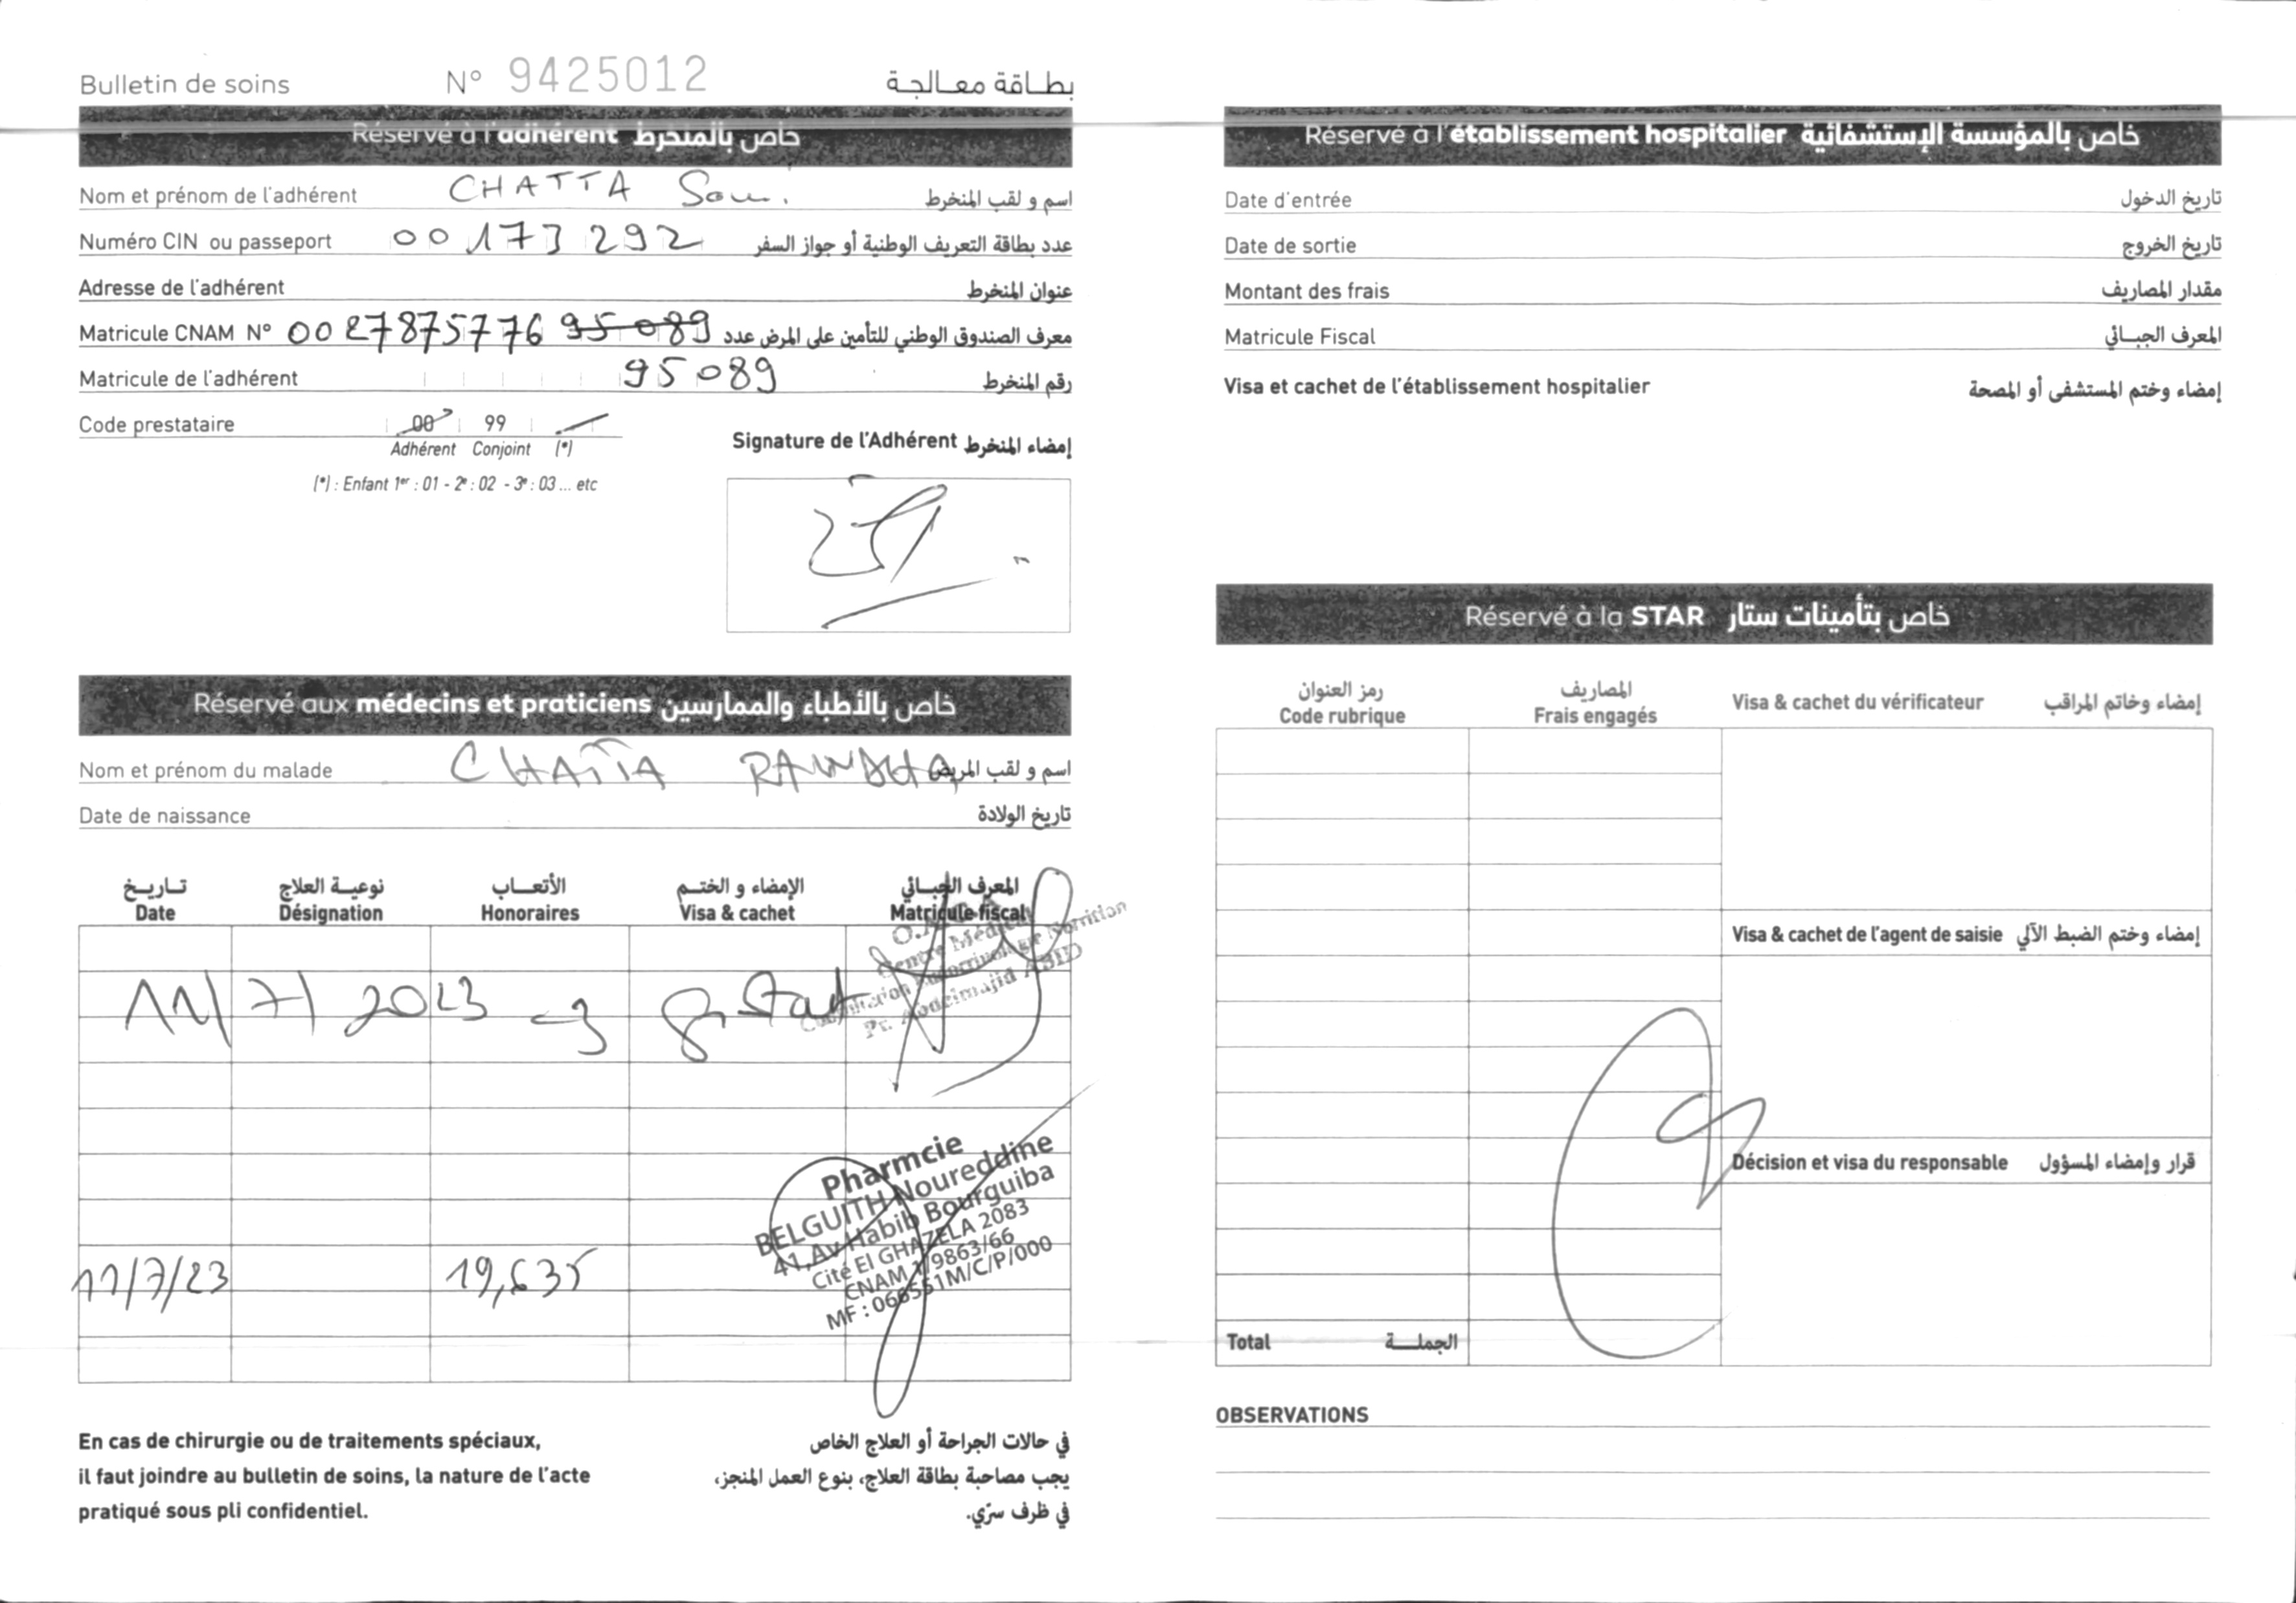 Bulletin de soins N° 9425012 بطاقة معالجة
Réservé à l'adhérent خاص بالمنخرط
Nom et prénom de l'adhérent CHATTA اسم و لقب المنخرط
Numéro CIN ou passeport 00173292 عدد بطاقة التعريف الوطنية أو جواز السفر
Adresse de l'adhérent عنوان المنخرط
Matricule CNAM N° 002787577695089 معرف الصندوق الوطني للتأمين على المرض عدد
Matricule de l'adhérent 95089 رقم المنخرط
Code prestataire 00 99
Adhérent Conjoint (*)
(*) : Enfant 1er : 01 - 2e : 02 - 3e : 03 ... etc
Signature de l'Adhérent إمضاء المنخرط
Réservé aux médecins et praticiens خاص بالأطباء والممارسين
Nom et prénom du malade CHATTA اسم و لقب المريض
Date de naissance تاريخ الولادة
تاريخ نوعية العلاج الأتعاب الإمضاء و الختم المعرف الجبائي
Date Désignation Honoraires Visa & cachet Matricule fiscal
Centre Médical
Nutrition
Pr. Abdelmajid ABID
11/7/2023
Pharmcie
BELGUITH Noureddine
41, Av Habib Bourguiba
Cité El GHAZELA 2083
CNAM 1/9863/66
MF : 066551M/C/P/000
11/7/23 19,635
En cas de chirurgie ou de traitements spéciaux,
il faut joindre au bulletin de soins, la nature de l'acte
pratiqué sous pli confidentiel.
في حالات الجراحة أو العلاج الخاص
يجب مصاحبة بطاقة العلاج، بنوع العمل المنجز،
في ظرف سرّي.
Réservé à l'établissement hospitalier خاص بالمؤسسة الإستشفائية
Date d'entrée تاريخ الدخول
Date de sortie تاريخ الخروج
Montant des frais مقدار المصاريف
Matricule Fiscal المعرف الجبائي
Visa et cachet de l'établissement hospitalier إمضاء وختم المستشفى أو المصحة
Réservé à la STAR خاص بتأمينات ستار
رمز العنوان المصاريف
Code rubrique Frais engagés Visa & cachet du vérificateur إمضاء وخاتم المراقب
Visa & cachet de l'agent de saisie إمضاء وختم الضبط الآلي
Décision et visa du responsable قرار وإمضاء المسؤول
Total الجملة
OBSERVATIONS